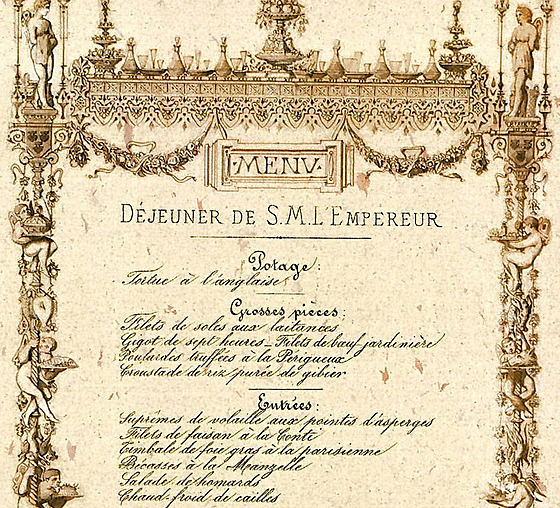 MENU
DÉJEUNER DE S.M.L'EMPEREUR
Potage:
Tortue à l'anglaise
Grosses pièces:
Filets de soles aux laitances
Gigot de sept heures _ Filets de bœuf jardinière
Poulardes truffées à la Périgueux
Croustade de riz purée de gibier
Entrées:
Suprêmes de volaille aux pointes d'asperges
Filets de faisan à la Conté
Timbale de foie gras à la parisienne
Bécasses à la Manzelle
Salade de homards
Chaud-froid de cailles